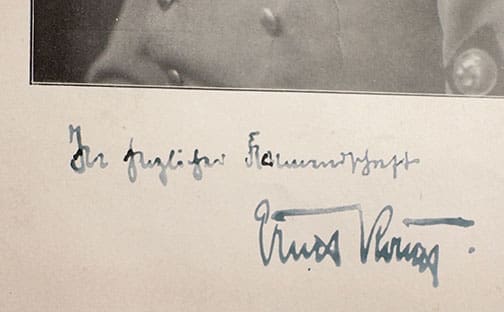 In herzlicher Kameradschaft
Ernst